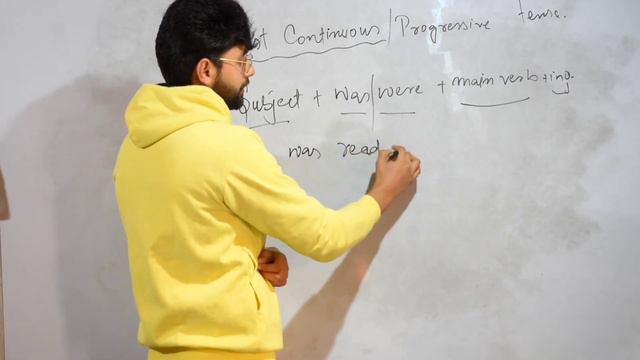 st Continuous / Progressive tense.
Subject + was/were + main verb + ing.
was read